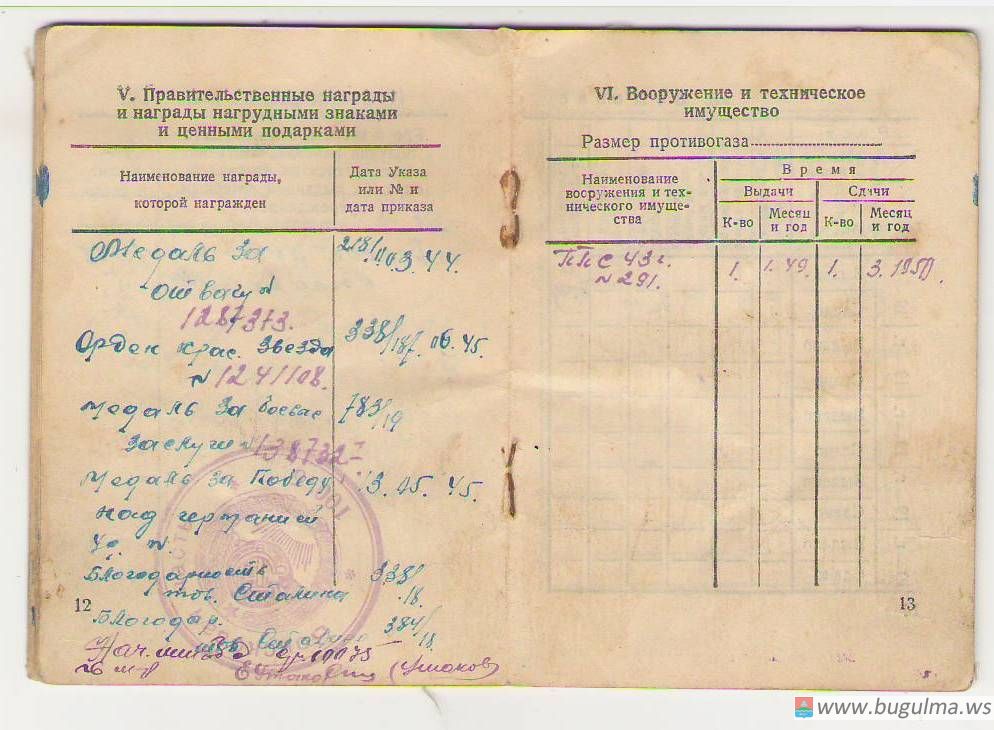 V. Правительственные награды
и награды нагрудными знаками
и ценными подарками
Наименование награды,
которой награжден
Дата Указа
или № и
дата приказа
Медаль За
отвагу №
1287373.
03.44.
Орден Крас. Звезда
№ 1241108.
338/187. 06.45.
Медаль За боевые
783/19
Заслуги №
Медаль За Победу
над германией
Благодарность
тов. Сталина
338/18.
Благодар.
384/18.
(Ушаков)
12
VI. Вооружение и техническое
имущество
Размер противогаза
Наименование
вооружения и тех-
нического имуще-
ства
Время
Выдачи
Сдачи
К-во
Месяц
и год
К-во
Месяц
и год
ППС 43 г.
№ 291.
1.
1.49.
1.
3.1950.
13
www.bugulma.ws